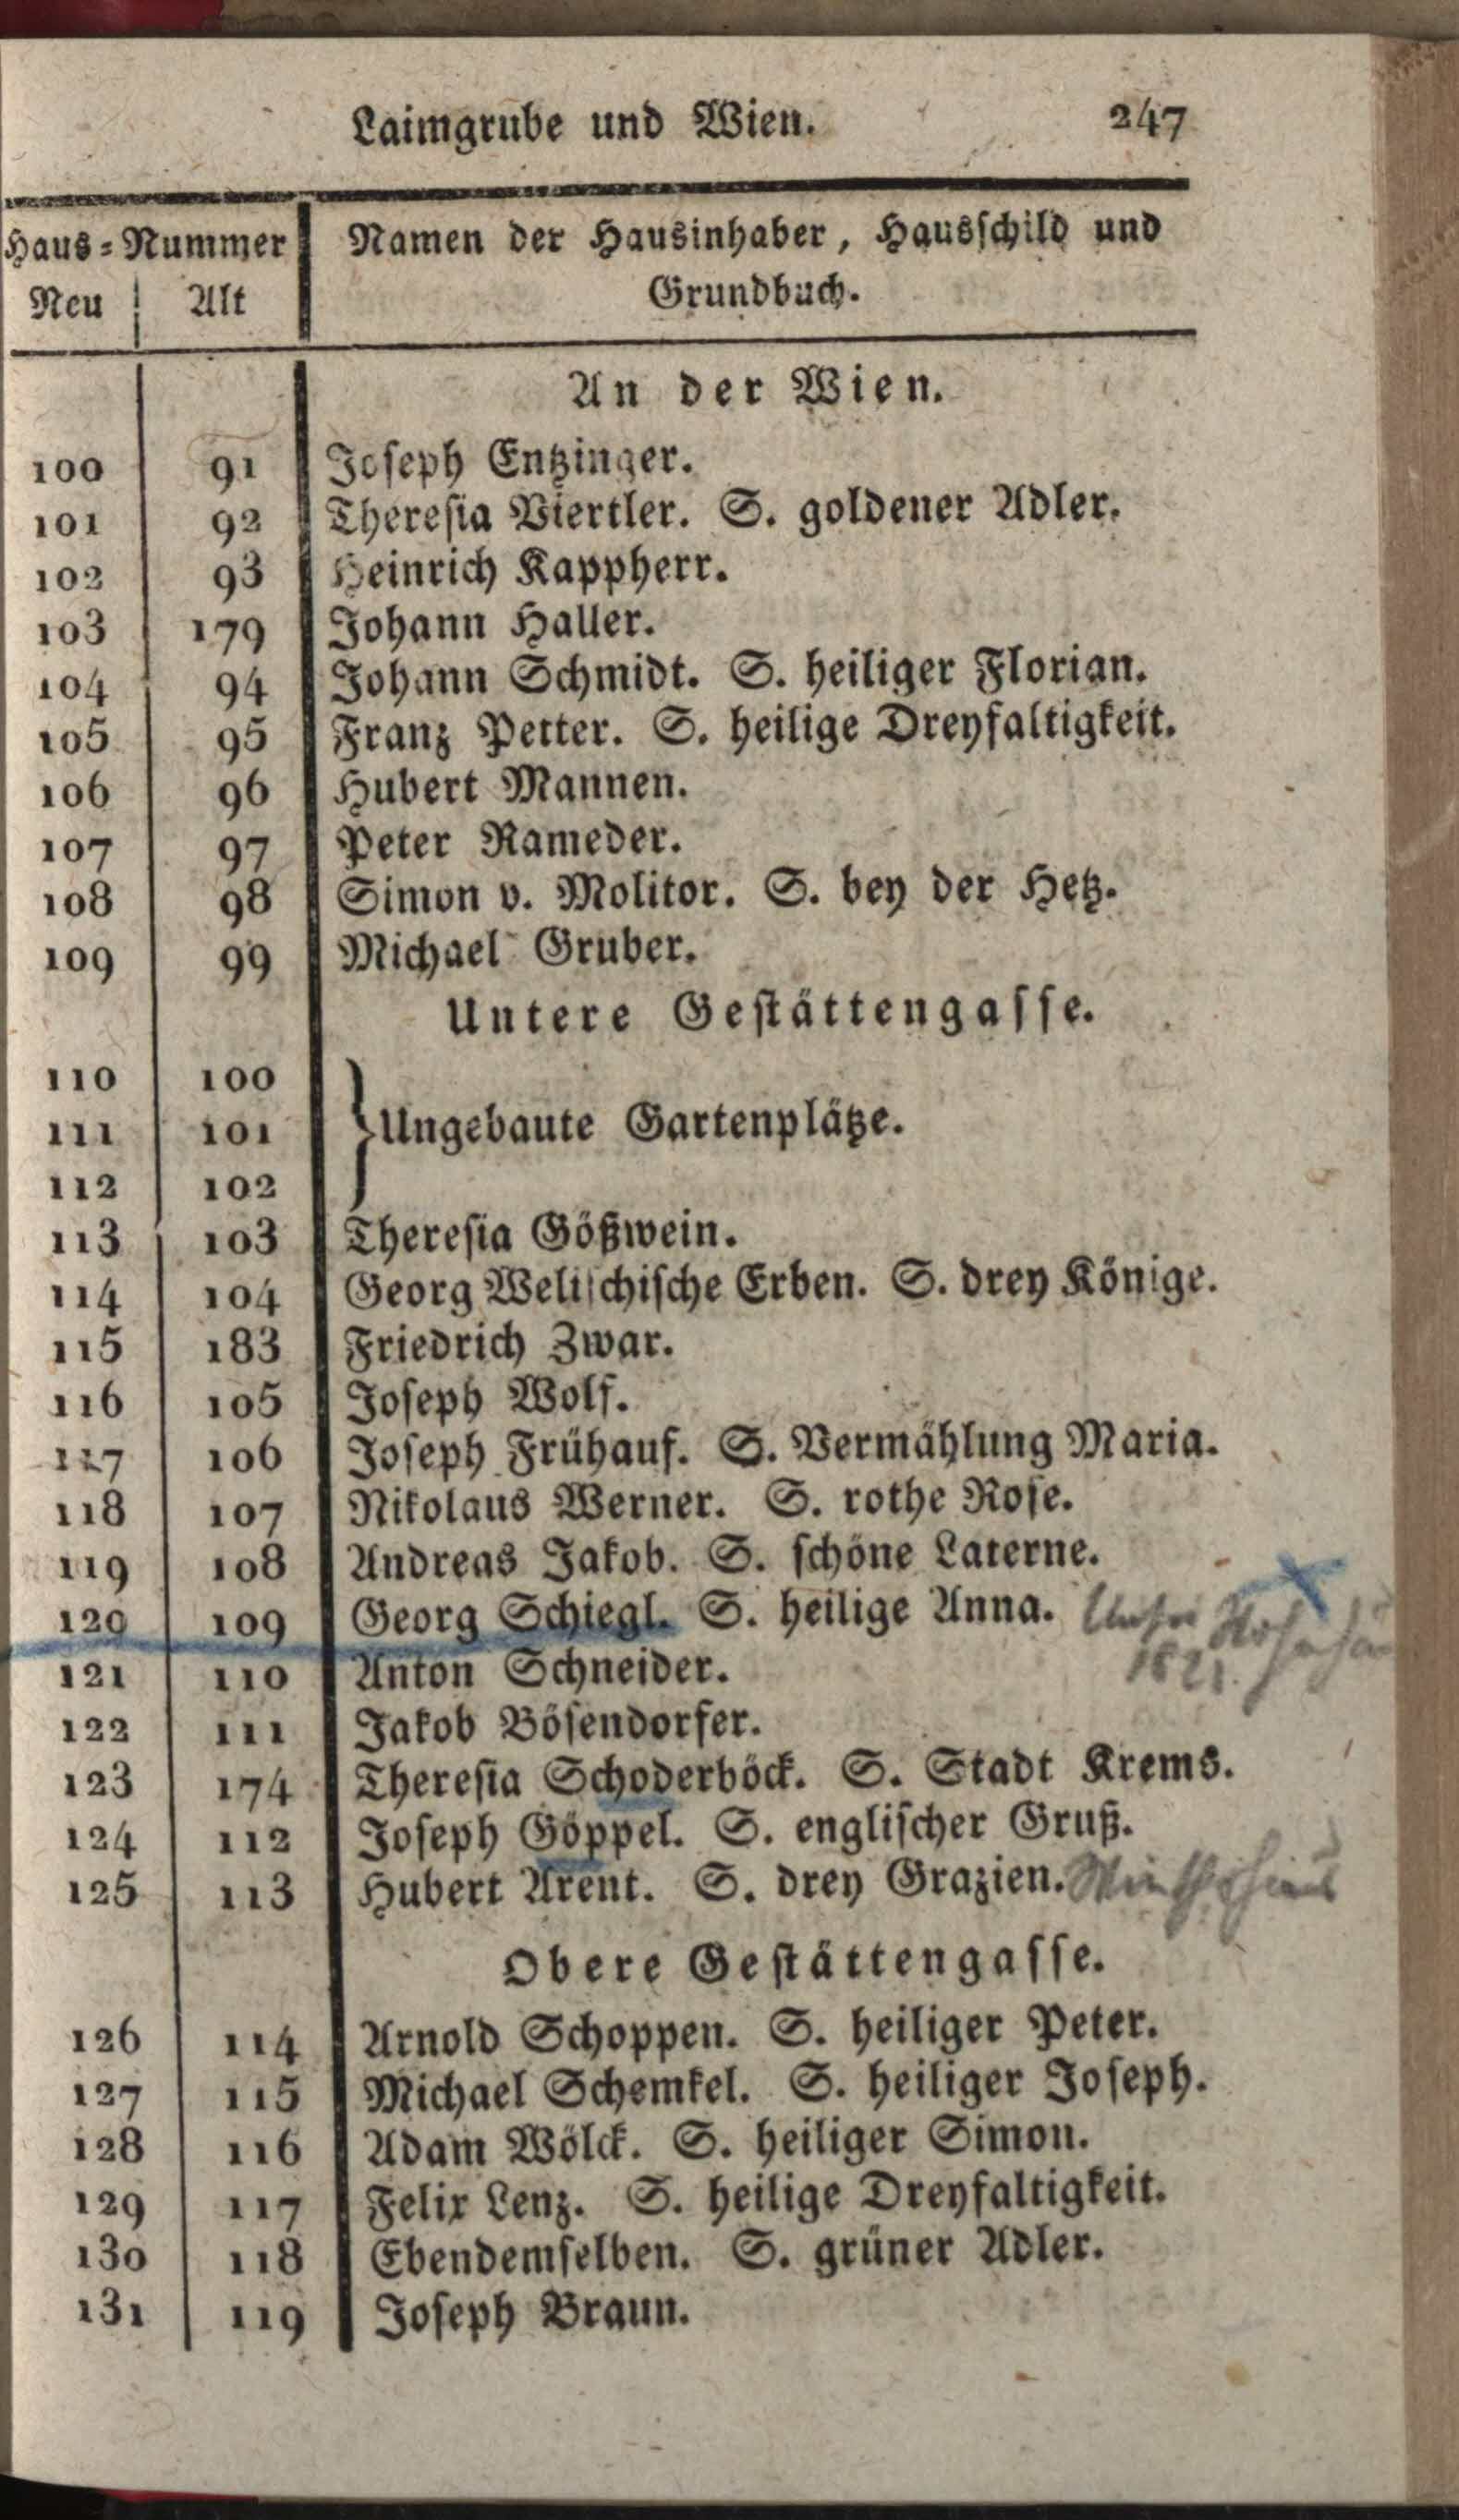 Laimgrube und Wien. 247
Haus-Nummer
Neu Alt
Namen der Hausinhaber, Hausschild und
Grundbuch.
An der Wien.
100 91 Joseph Entzinger.
101 92 Theresia Viertler. S. goldener Adler.
102 93 Heinrich Kappherr.
103 179 Johann Haller.
104 94 Johann Schmidt. S. heiliger Florian.
105 95 Franz Petter. S. heilige Dreyfaltigkeit.
106 96 Hubert Mannen.
107 97 Peter Rameder.
108 98 Simon v. Molitor. S. bey der Hetz.
109 99 Michael Gruber.
Untere Gestättengasse.
110 100
111 101 Ungebaute Gartenplätze.
112 102
113 103 Theresia Gößwein.
114 104 Georg Welischische Erben. S. drey Könige.
115 183 Friedrich Zwar.
116 105 Joseph Wolf.
117 106 Joseph Frühauf. S. Vermählung Maria.
118 107 Nikolaus Werner. S. rothe Rose.
119 108 Andreas Jakob. S. schöne Laterne.
120 109 Georg Schiegl. S. heilige Anna.
1821.
121 110 Anton Schneider.
122 111 Jakob Bösendorfer.
123 174 Theresia Schoderböck. S. Stadt Krems.
124 112 Joseph Göppel. S. englischer Gruß.
125 113 Hubert Arent. S. drey Grazien.
Obere Gestättengasse.
126 114 Arnold Schoppen. S. heiliger Peter.
127 115 Michael Schemkel. S. heiliger Joseph.
128 116 Adam Wölck. S. heiliger Simon.
129 117 Felix Lenz. S. heilige Dreyfaltigkeit.
130 118 Ebendemselben. S. grüner Adler.
131 119 Joseph Braun.